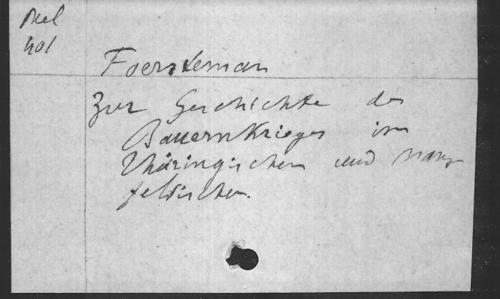 Mel
401
Foerstemann
Zur Geschichte des
Bauernkrieges im
Thüringischen und Mans-
feldischen.